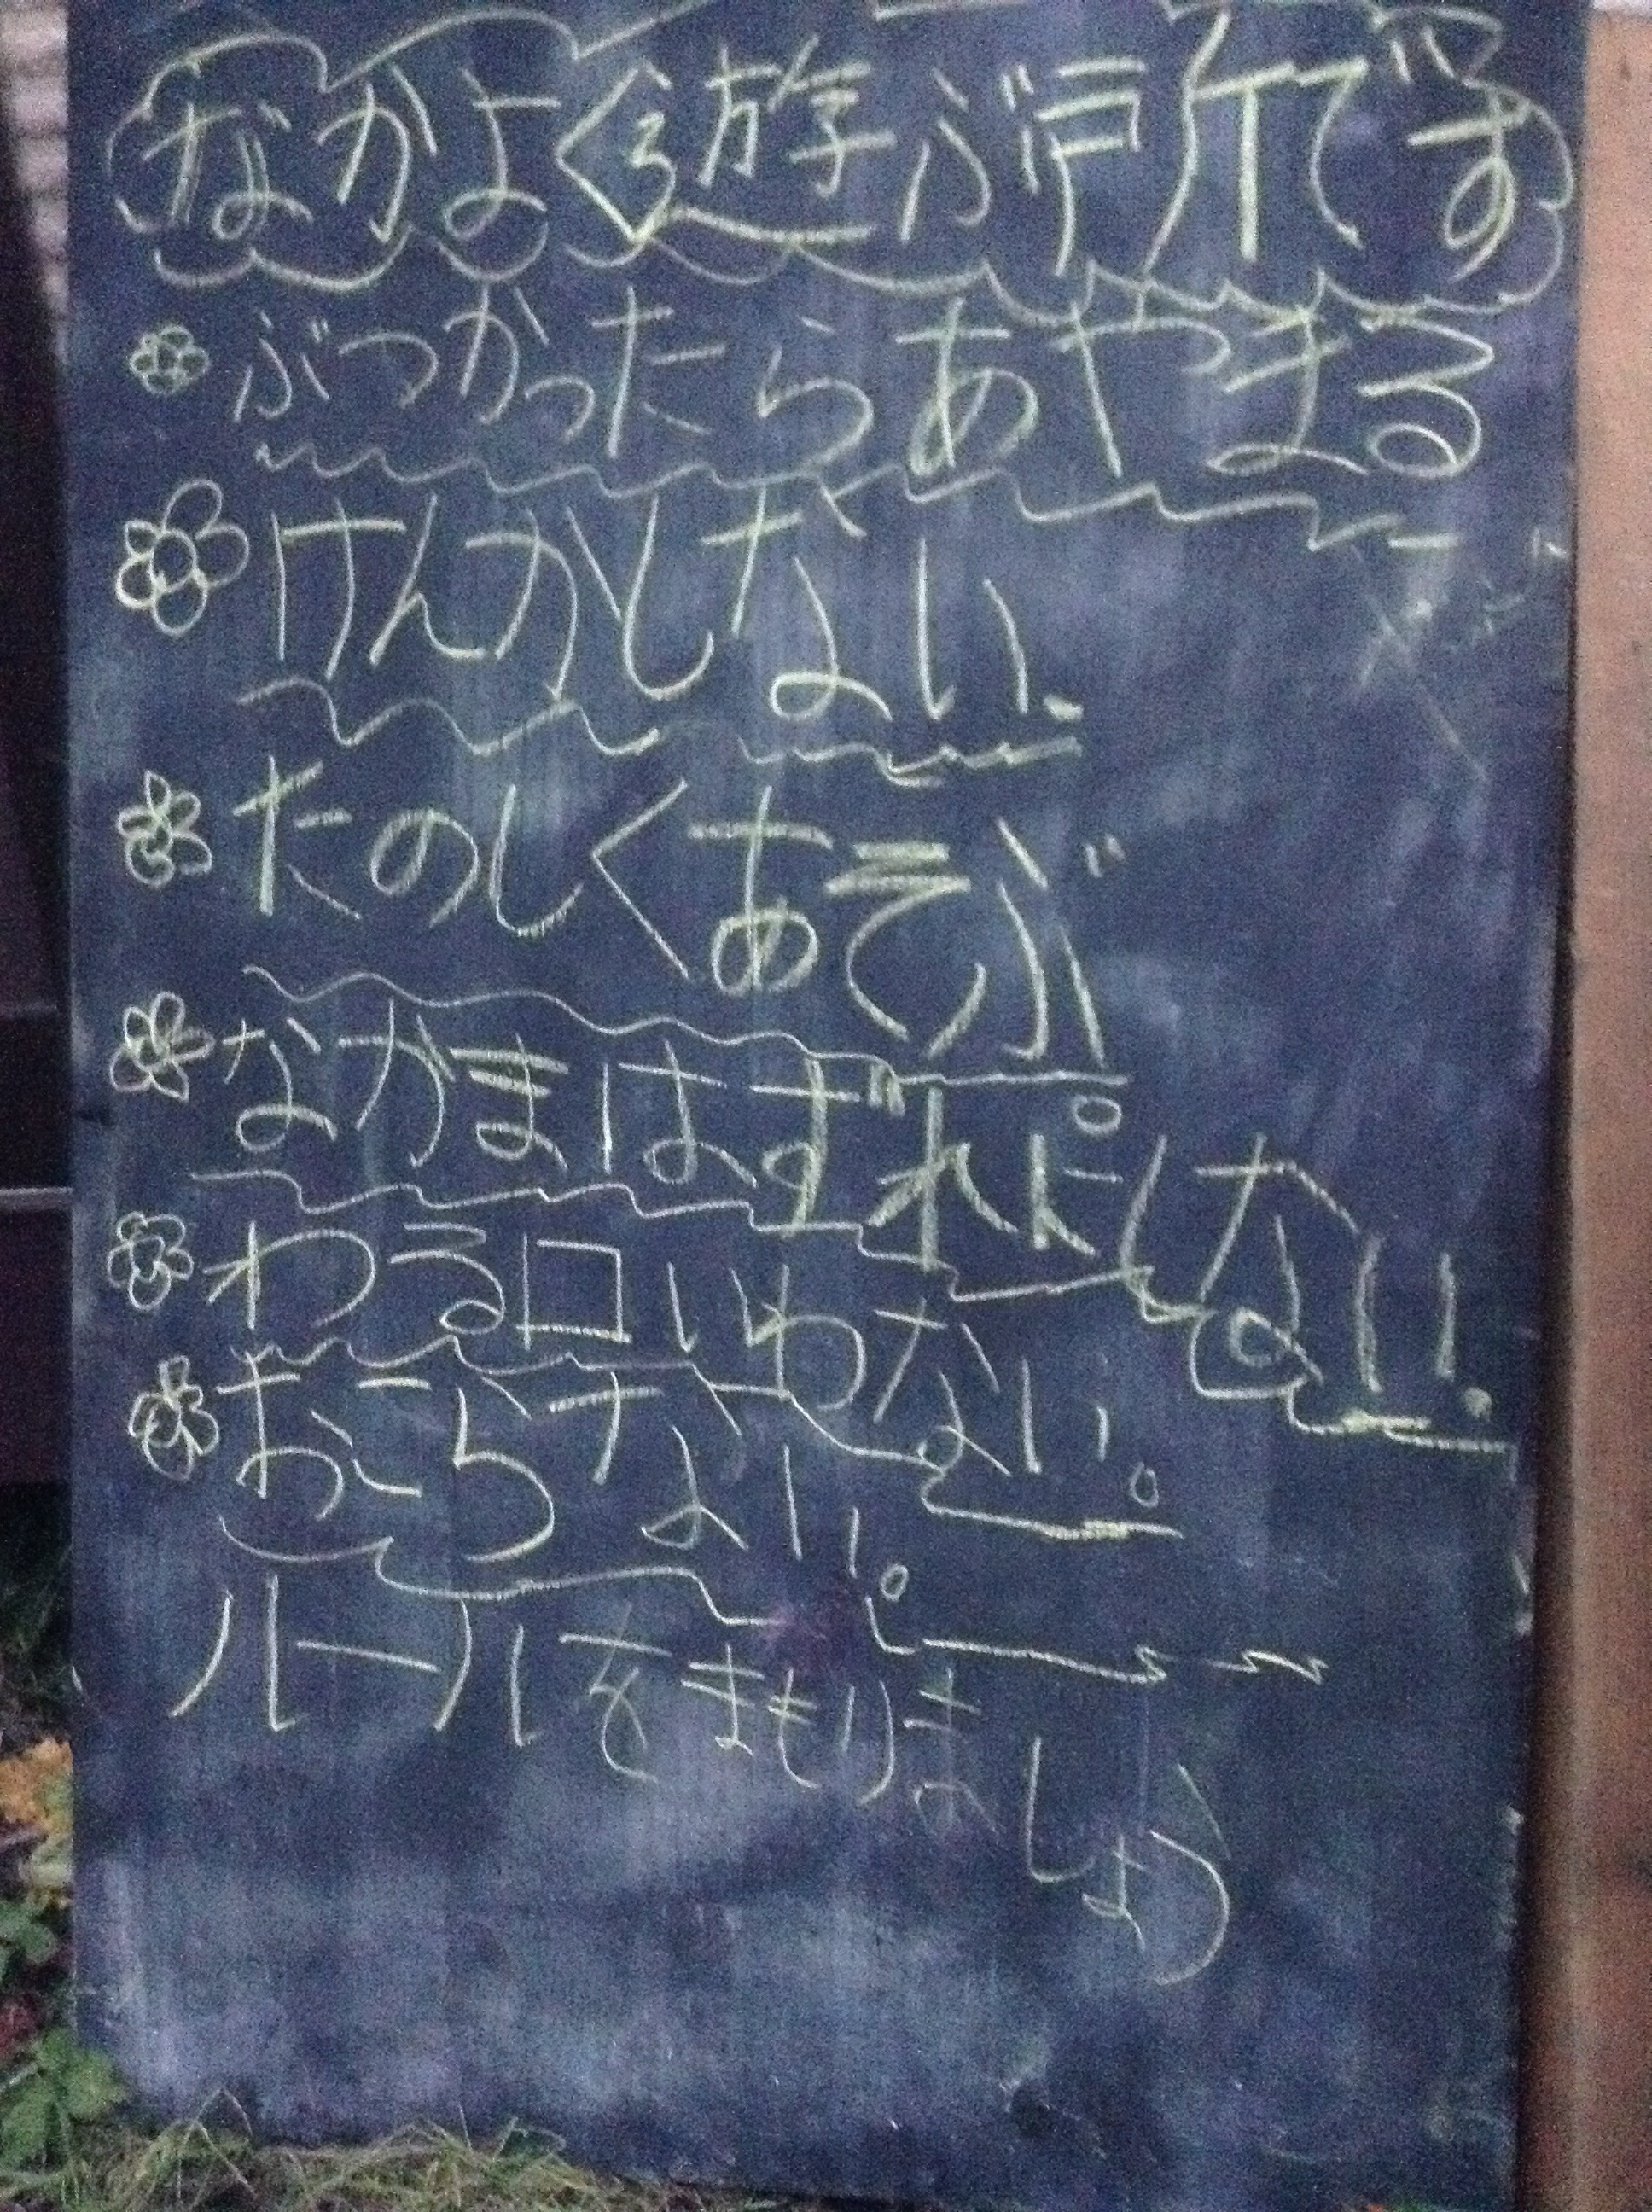 なかよく遊ぶ所です
ぶつかったらあやまる
けんかしない、
たのしくあそぶ
なかまはずれにしない。
わる口いわない。
おこらない。
ルールをまもりましょう